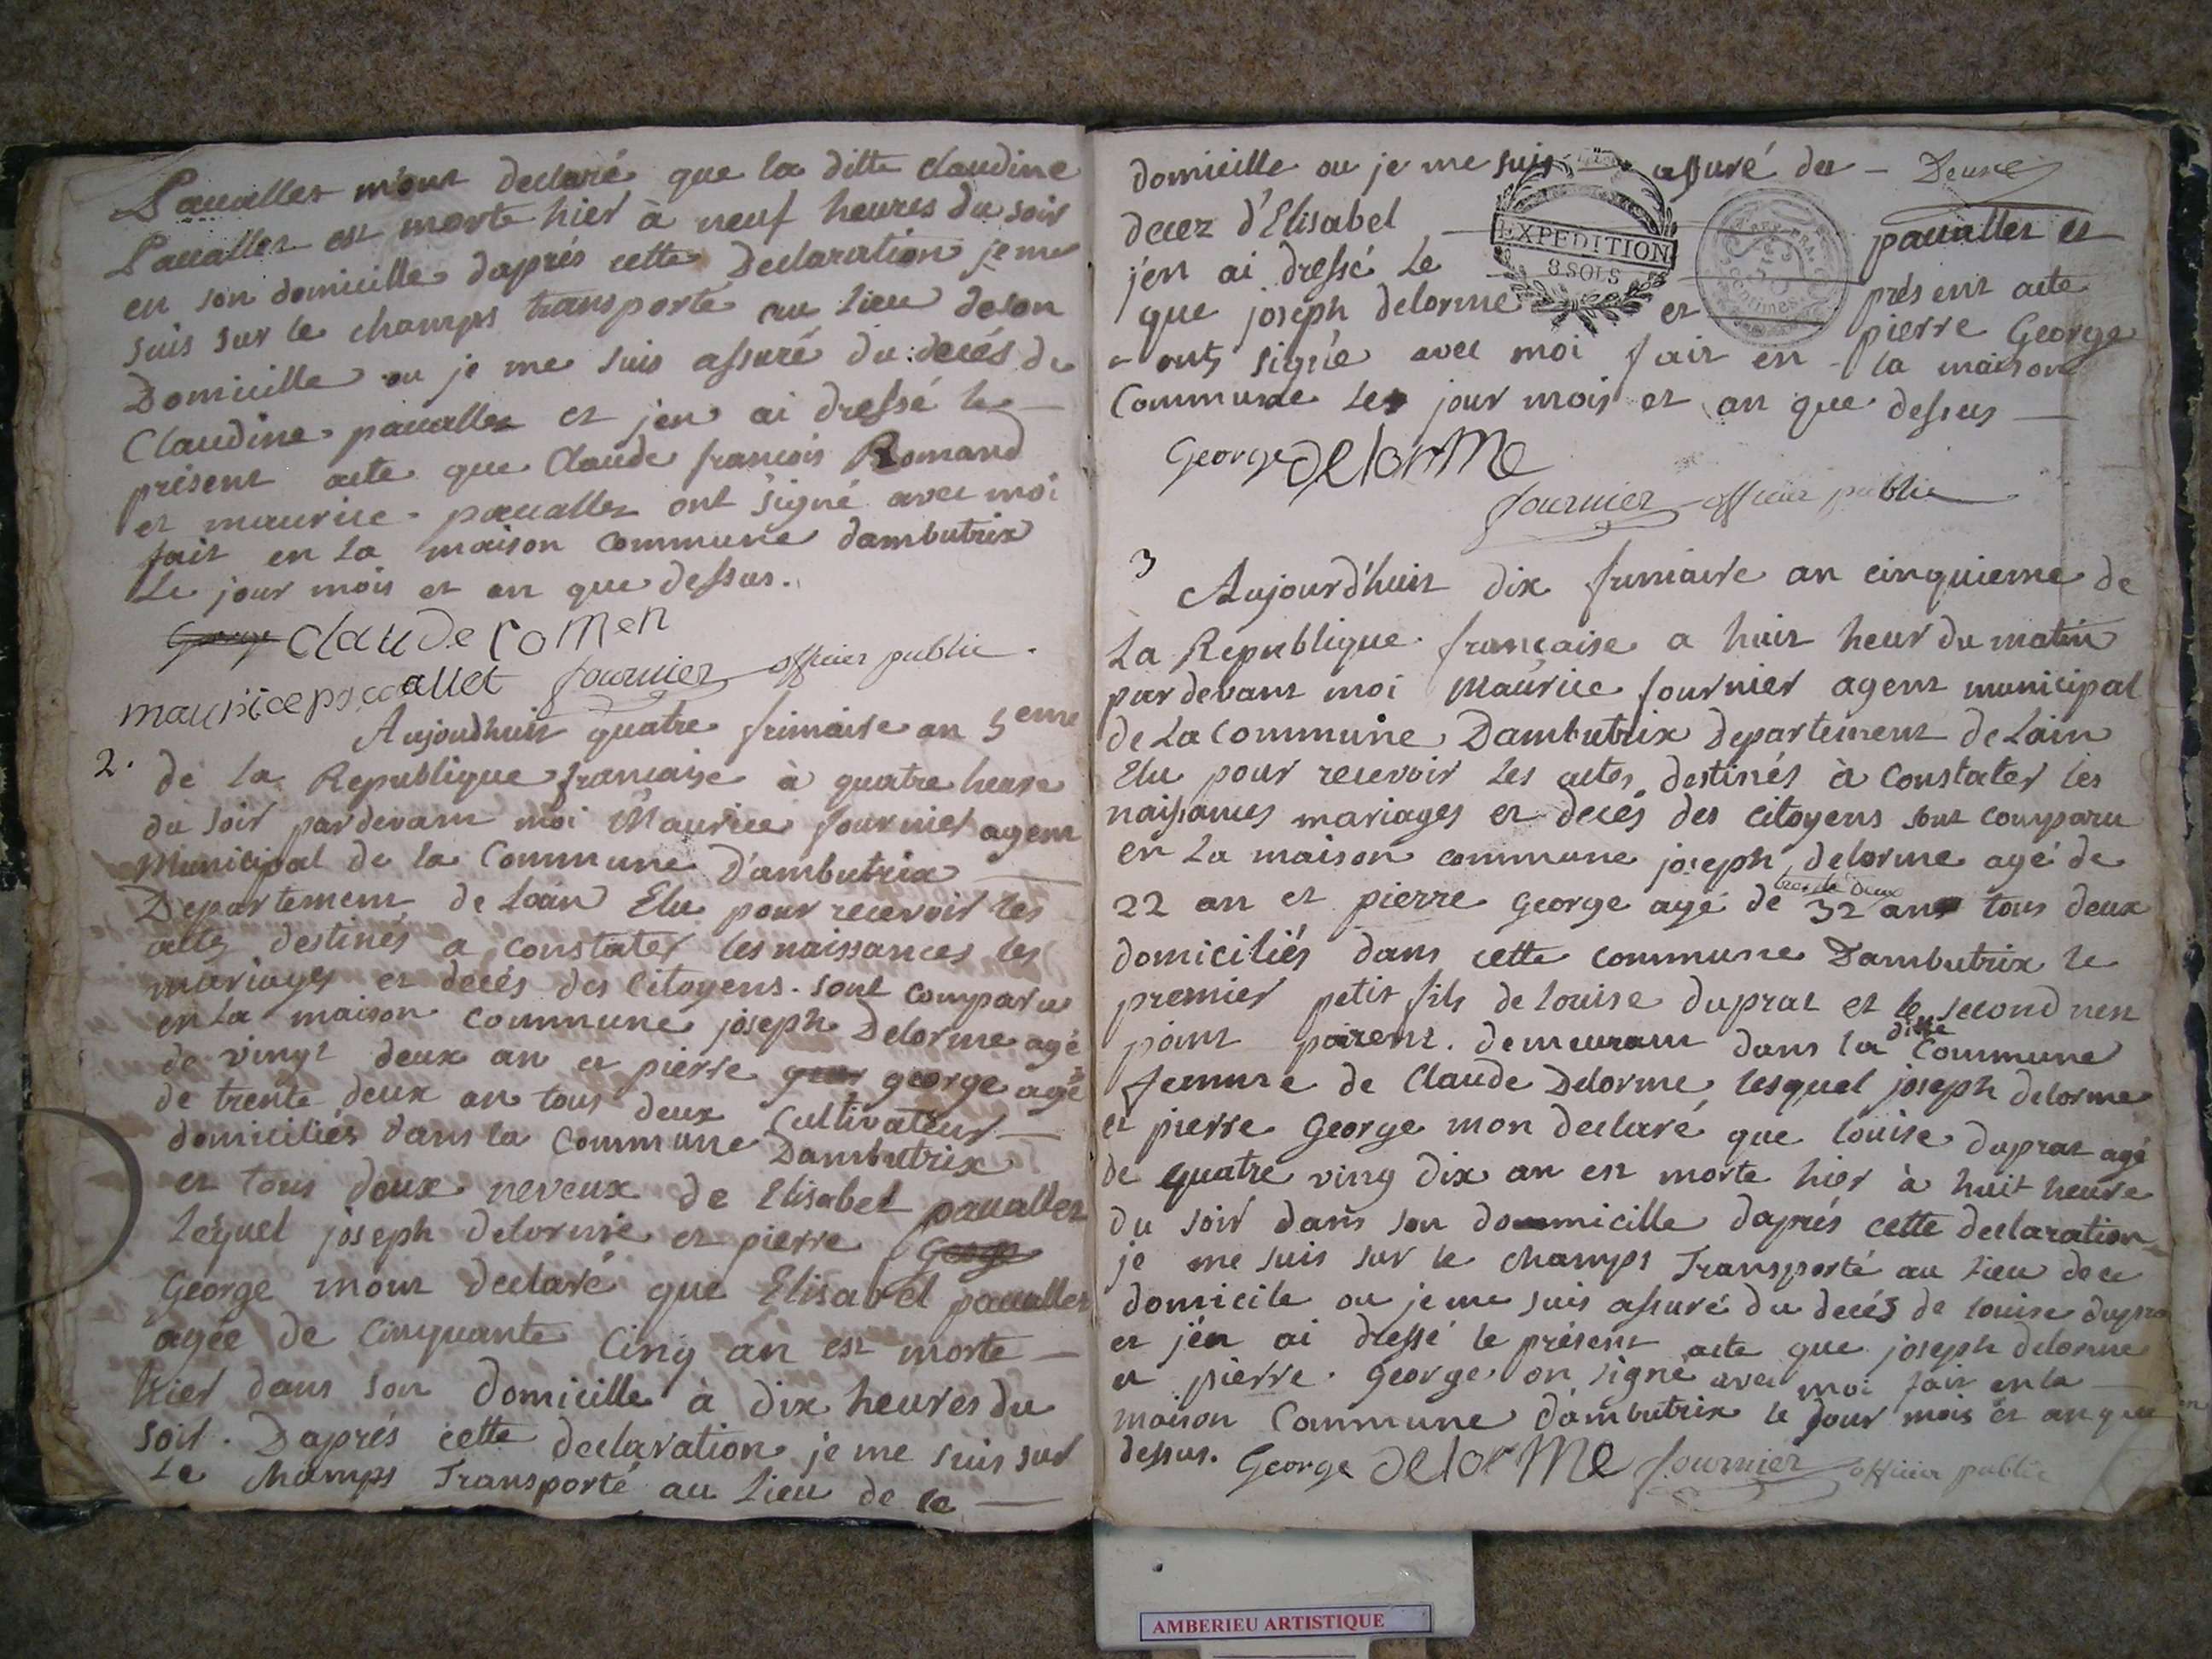 Pacallet m'ont declaré que la ditte claudine
Pacallet est morte hier à neuf heures du soir
en son domicille daprés cette Declaration je me
suis sur le champs transporté au lieu deson
Domicille ou je me suis assuré du decés de
Claudine pacallet et jen ai dressé le
présent acte que Claude francois Romand
et maurice pacallet ont signé avec moi
fait en la maison commune dambutrix
le jour mois et an que dessus.
George claude romen
maurice pacallet fournier officier public.
2.
Aujoudhuit quatre frimaire an 5eme
de la Republique francaise à quatre heure
du soir pardevant moi Maurice fournier agent
Municipal de la Commune D'ambutrix
Departement de Lain Elu pour recevoir les
actes destinés a constater les naissances les
mariages et decés des Citoyens. sont comparu
en la maison commune joseph Delorme agé
de vingt deux an et pierre george agé
de trente deux an tous deux Cultivateur
domiciliés dans la Commune Dambutrix
et tous deux neveux de Elisabet pacallet
lequel joseph delorme et pierre George
George mont declaré que Elisabet pacallet
agée de Cinquante Cinq an est morte
hier dans son Domicille à dix heures du
soir. Daprés cette declaration je me suis sur
Le Champs Transporté au lieu de ce
domicille ou je me suis assuré du - Deuxe
decez d'Elisabel pacallet et
j'en ai dressé Le présent acte
que joseph delorme et pierre George
onts signée avec moi fait en la maison
Commune les jour mois et an que dessus
EXPEDITION
8 SOLS
George Delorme
fournier officier public
3
Aujourd'huit dix frimaire an cinquieme de
La Republique française a huit heur du matin
pardevant moi Maurice fournier agent municipal
de La Commune Dambutrix Departement de Lain
Elu pour recevoir les actes destinés à Constater les
naissances mariages et decés des Citoyens sont comparu
en La maison commune joseph delorme agé de
trente deux
22 an et pierre george agé de 32 ans tous deux
domiciliés dans cette commune Dambutrix le
premier petit fils de louise duprat et le second nest
point parent. demeurant dans la ditte Commune
femme de Claude Delorme, lesquel joseph delorme
et pierre George mon declaré que louise duprat agé
de quatre ving dix an est morte hier à huit heure
du soir dans son domicille daprés cette declaration
je me suis sur le champs Transporté au lieu de ce
domicile ou je me suis assuré du decés de louise dupra
et jén ai dressé le présent acte que joseph delorme
et pierre George on signé avec moi fait en la
maison Commune d'ambutrix le jour mois et an que
dessus. George delorme fournier officier public
AMBERIEU ARTISTIQUE